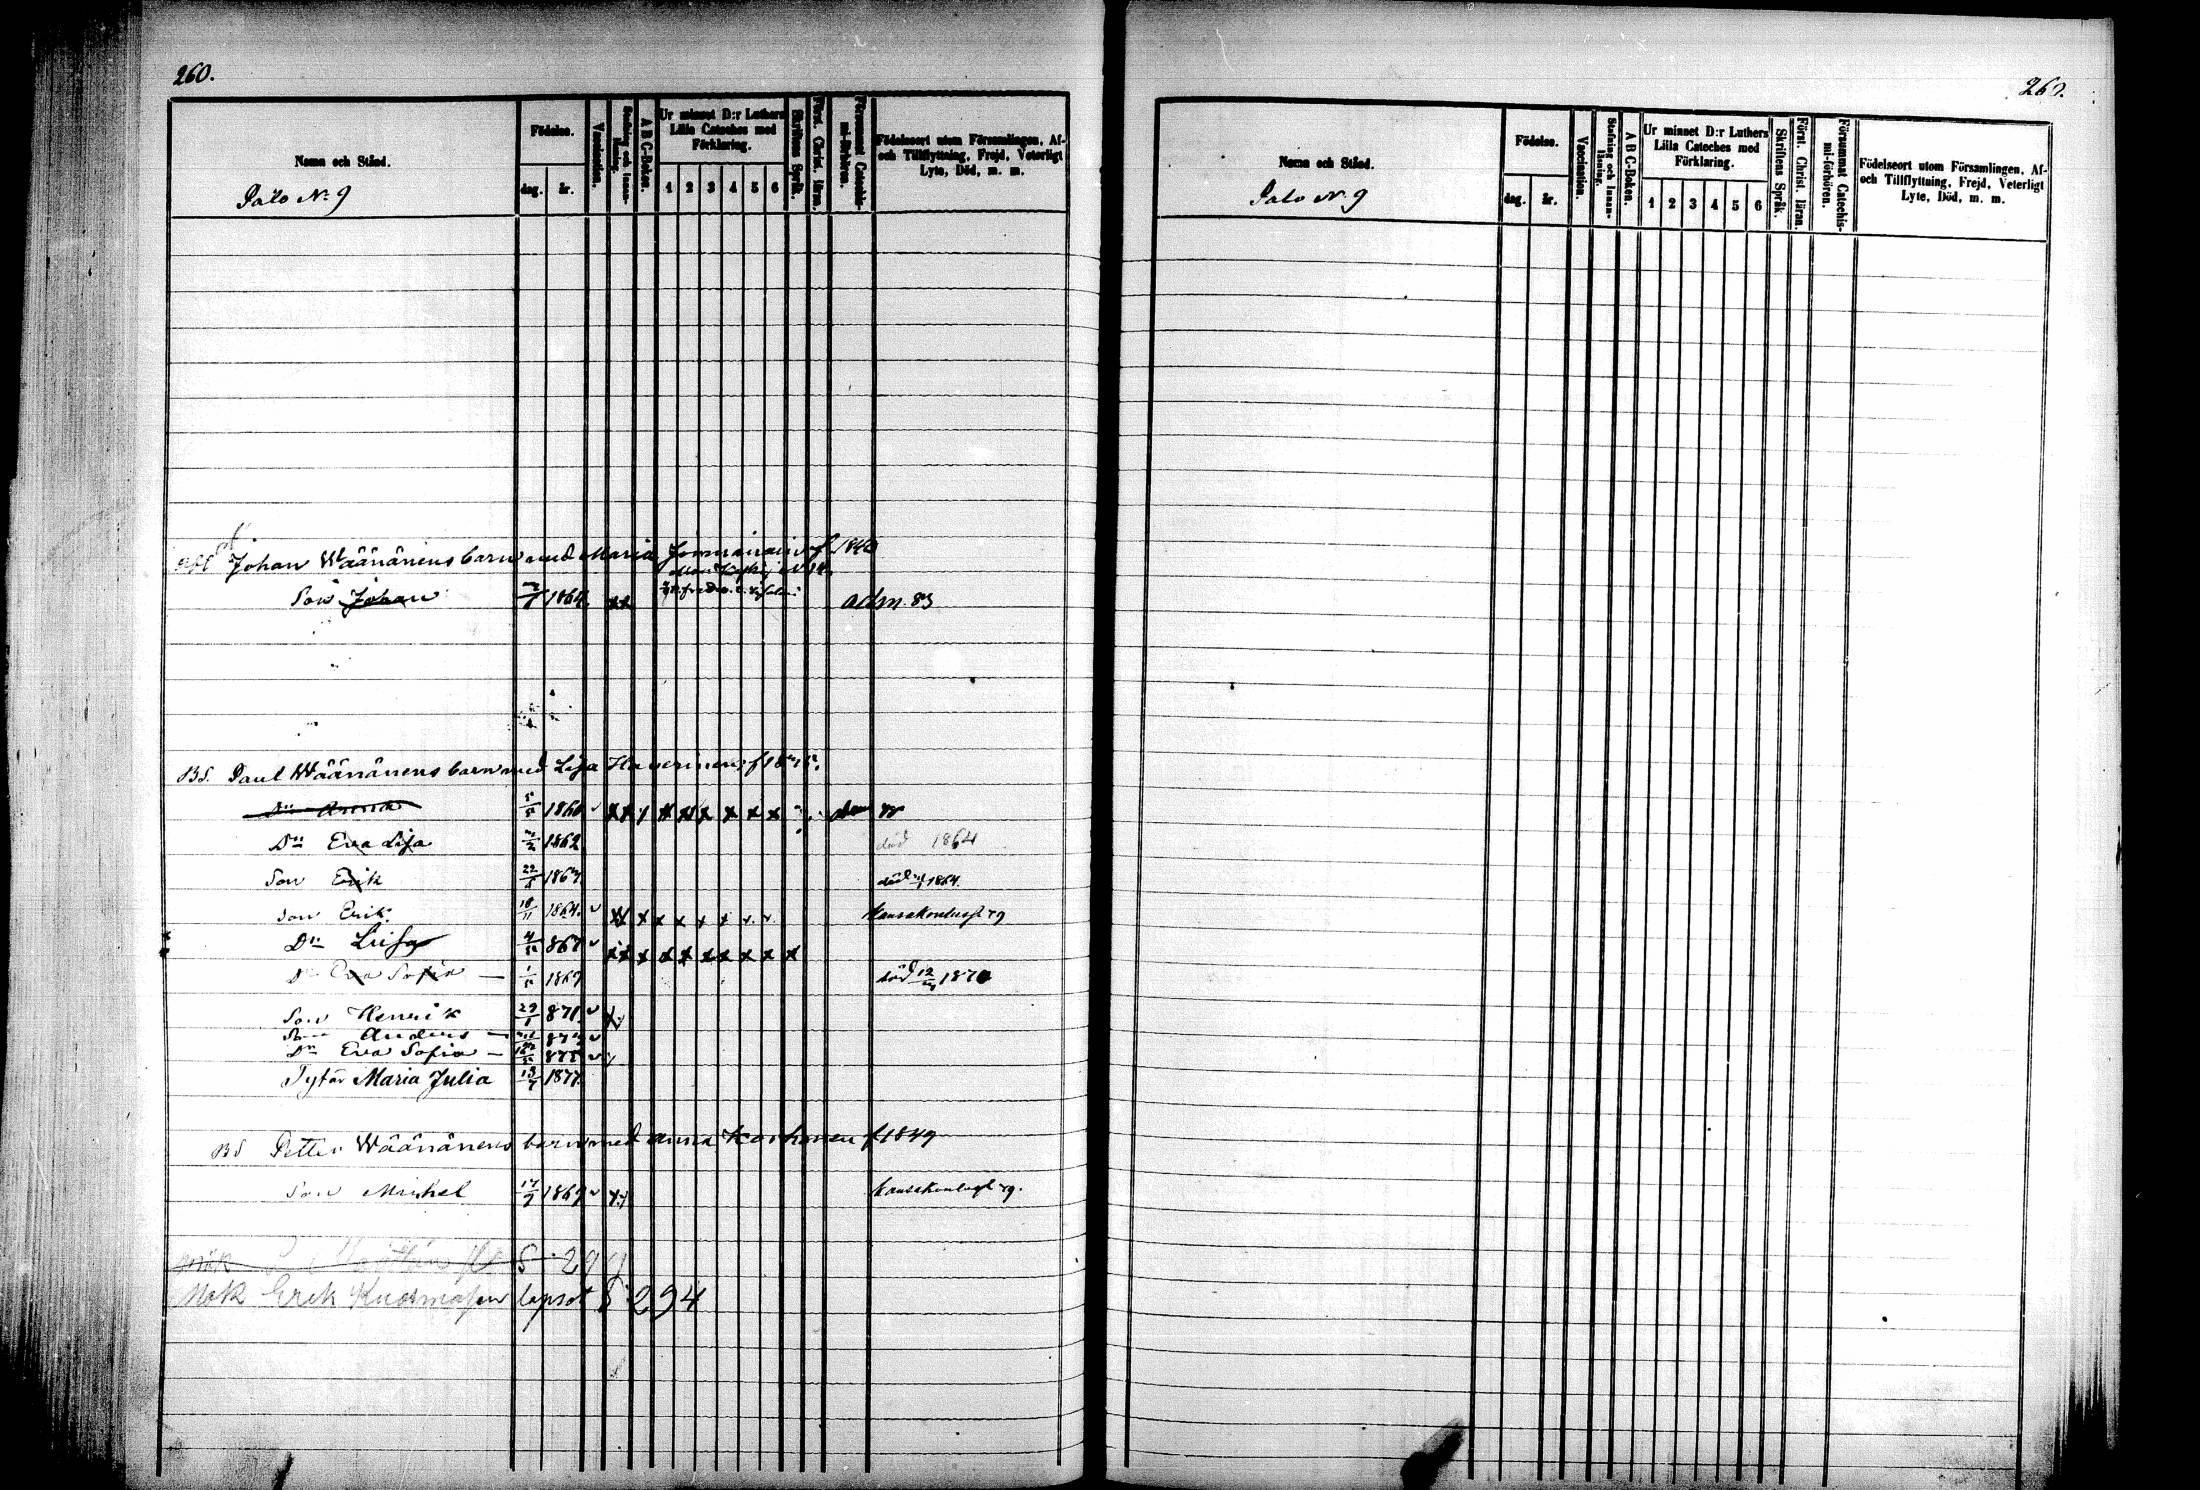 260.
Namn och Stånd.
Palo No 9
Födelse.
dag. år.
Vaccination.
Stafning och Innanläsning.
A B C-Boken.
Ur minnet D:r Luthers Lilla Cateches med Förklaring.
1 2 3 4 5 6
Skriftens Språk.
Först. Christ. läran.
Försummat Catechismi-förhören.
Födelseort utom Församlingen, Af- och Tillflyttning, Frejd, Veterligt Lyte, Död, m. m.
Johan Wäänänens barn med Maria
Son Johan 1864 xx adm. 83
BS. Paul Wäänänens barn med Lisa Haverinen, f
Dr Anna 5/5 1860 x x x x x x
Dr Eva Lisa 1862 död 1864
Son Erik 22/5 1863 död 1864.
Son Erik 18/11 1864 x x x x x x Kansakoulusta 79
Dr Luisa 867 x x x x x x x x x
Dr Eva Sofia — 1869 död 12 187
Son Henrik 29/1 871
Son Anders —
Dr Eva Sofia — 875
Tytär Maria Julia 13/7 1877
BS Petter Wäänänens barn med Anna Korhonen f 1849
Son Michel 1869 Kansakoulusta 79.
S. 29
Mök Erik lapset S 294
260.
Namn och Stånd.
Palo No 9
Födelse.
dag. år.
Vaccination.
Stafning och Innanläsning.
A B C-Boken.
Ur minnet D:r Luthers Lilla Cateches med Förklaring.
1 2 3 4 5 6
Skriftens Språk.
Först. Christ. läran.
Försummat Catechismi-förhören.
Födelseort utom Församlingen, Af- och Tillflyttning, Frejd, Veterligt Lyte, Död, m. m.